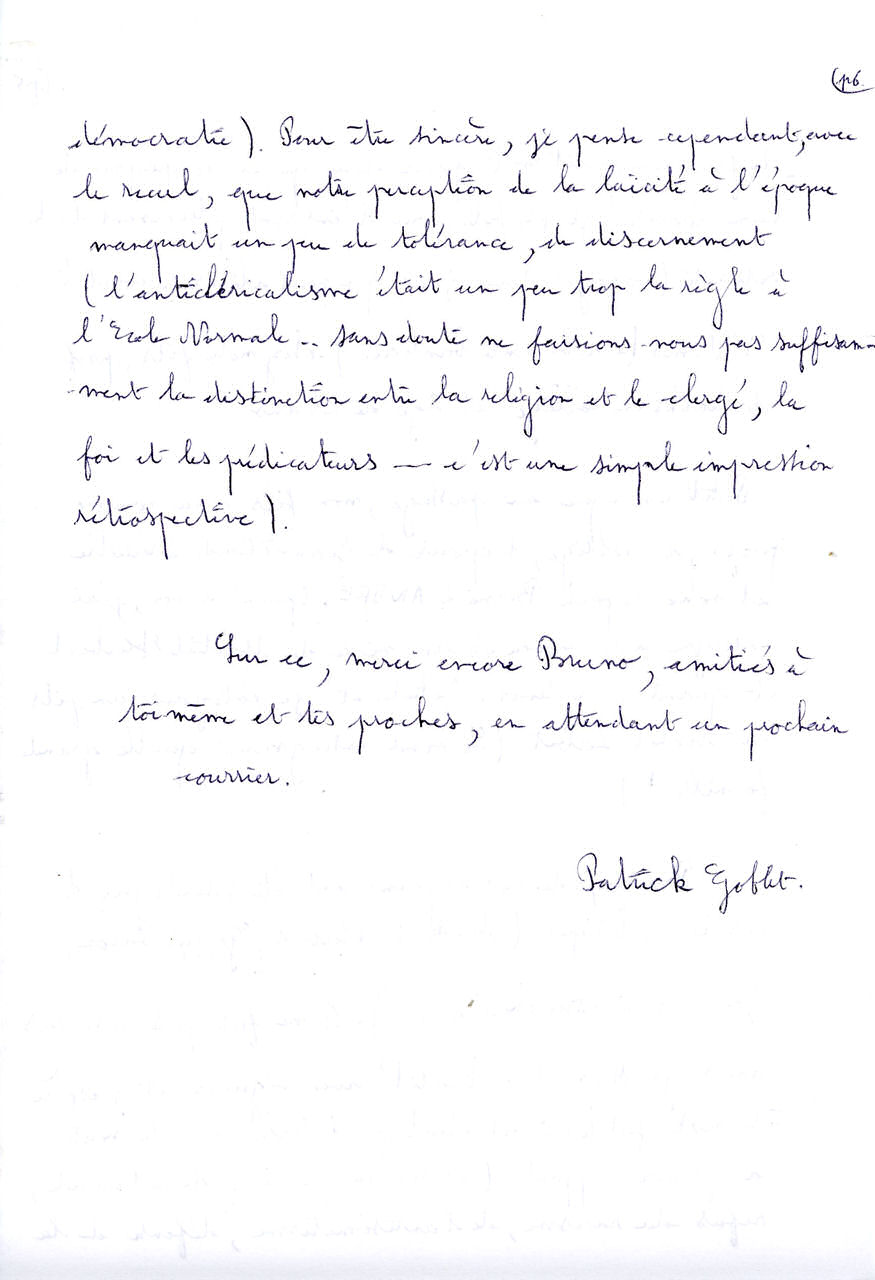 p6.
démocratie). Pour être sincère, je pense cependant, avec
le recul, que notre perception de la laïcité à l'époque
manquait un peu de tolérance, de discernement
(l'anticléricalisme était un peu trop la règle à
l'Ecole Normale .. sans doute ne faisions-nous pas suffisam-
-ment la distinction entre la religion et le clergé, la
foi et les prédicateurs — c'est une simple impression
rétrospective).
Sur ce, merci encore Bruno, amitiés à
toi même et tes proches, en attendant un prochain
courrier.
Patrick Goblet.